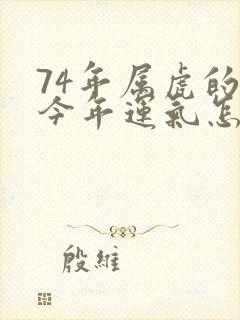 74年属虎的
今年运气怎
殷维